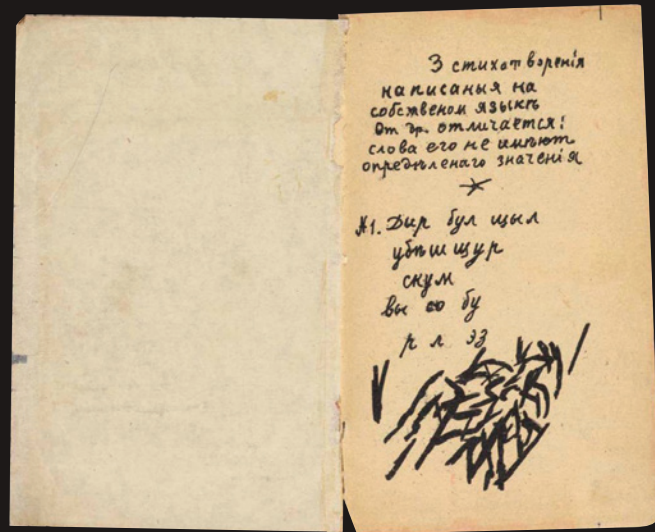 3 стихотворенія
написаныя на
собственом языкѣ
От др. отличается:
слова его не имѣют
опредѣленаго значенія
*
№1. Дыр бул щыл
убѣшщур
скум
вы со бу
р л эз